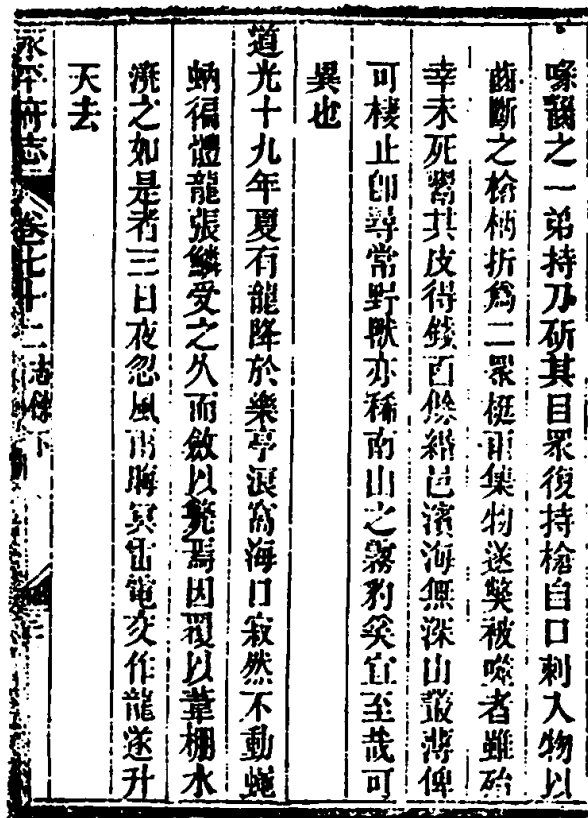 喙齧之一弟持刀斫其目衆復持槍自口刺入物以
齒斷之槍柄折爲二衆梃雨集物遂斃被噬者雖殆
幸未死鬻其皮得錢百餘緡邑濱海無深山叢薄俾
可棲止卽尋常野獸亦稀南山之霧豹奚宜至哉可
異也
道光十九年夏有龍降於樂亭浪窩海口寂然不動蠅
蚋徧體龍張鱗受之久而斂以斃焉因覆以葦棚水
潑之如是者三日夜忽風雨晦冥雷電交作龍遂升
天去
永平府志 卷七十二 志餘下